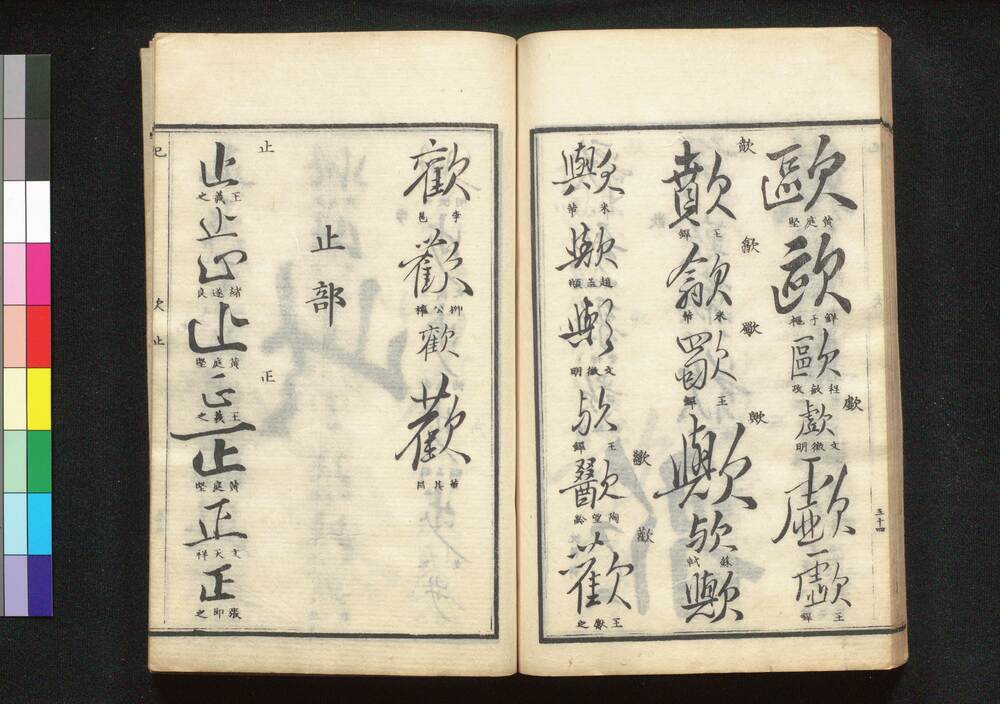 歐
黄庭堅
歐
鮮于樞
歐
程敏政
歔
歔
文徴明
歔
歔
王鐸
歕
歕
王鐸
歙
歙
米芾
歜
王鐸
歟
歟
欤
蘇軾
歟
五十四
歟
米芾
歟
趙孟頫
歟
文徴明
欤
王鐸
陶望齡
歡
歡
王獻之
歡
李邕
歡
柳公權
歡
歡
董其昌
止部
止
止
王羲之
止
止
褚遂良
止
黄庭堅
正
正
王羲之
正
黄庭堅
正
文天祥
正
張即之
巳
欠止